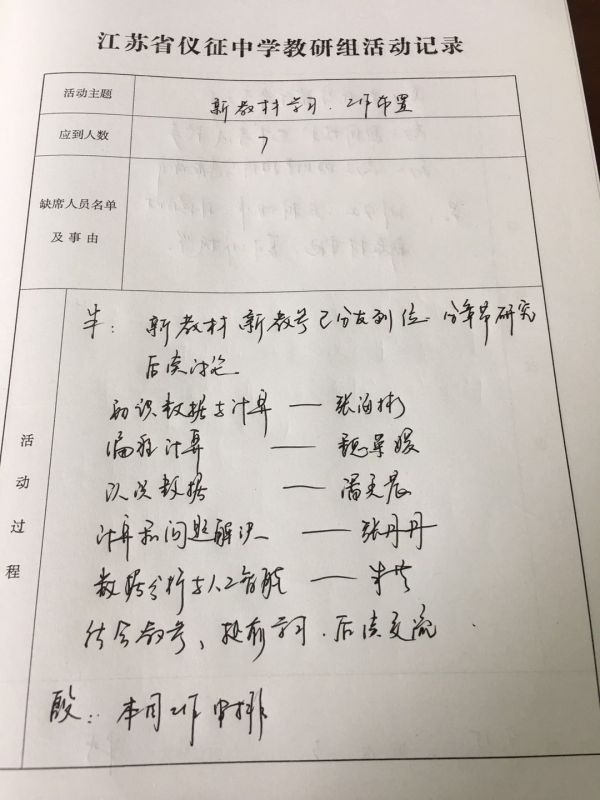 江苏省仪征中学教研组活动记录
活动主题
新教材学习.工作布置
应到人数
7
缺席人员名单
及事由
活动过程
新教材 新教参已分发到位. 分章节研究
后续讨论
初识数据与计算 —— 张海彬
编程计算 —— 魏翠媛
认识数据 —— 潘美晨
计算和问题解决 —— 张丹丹
数据分析与人工智能 ——
结合教参、提前学习.后续交流.
殷: 本周工作安排